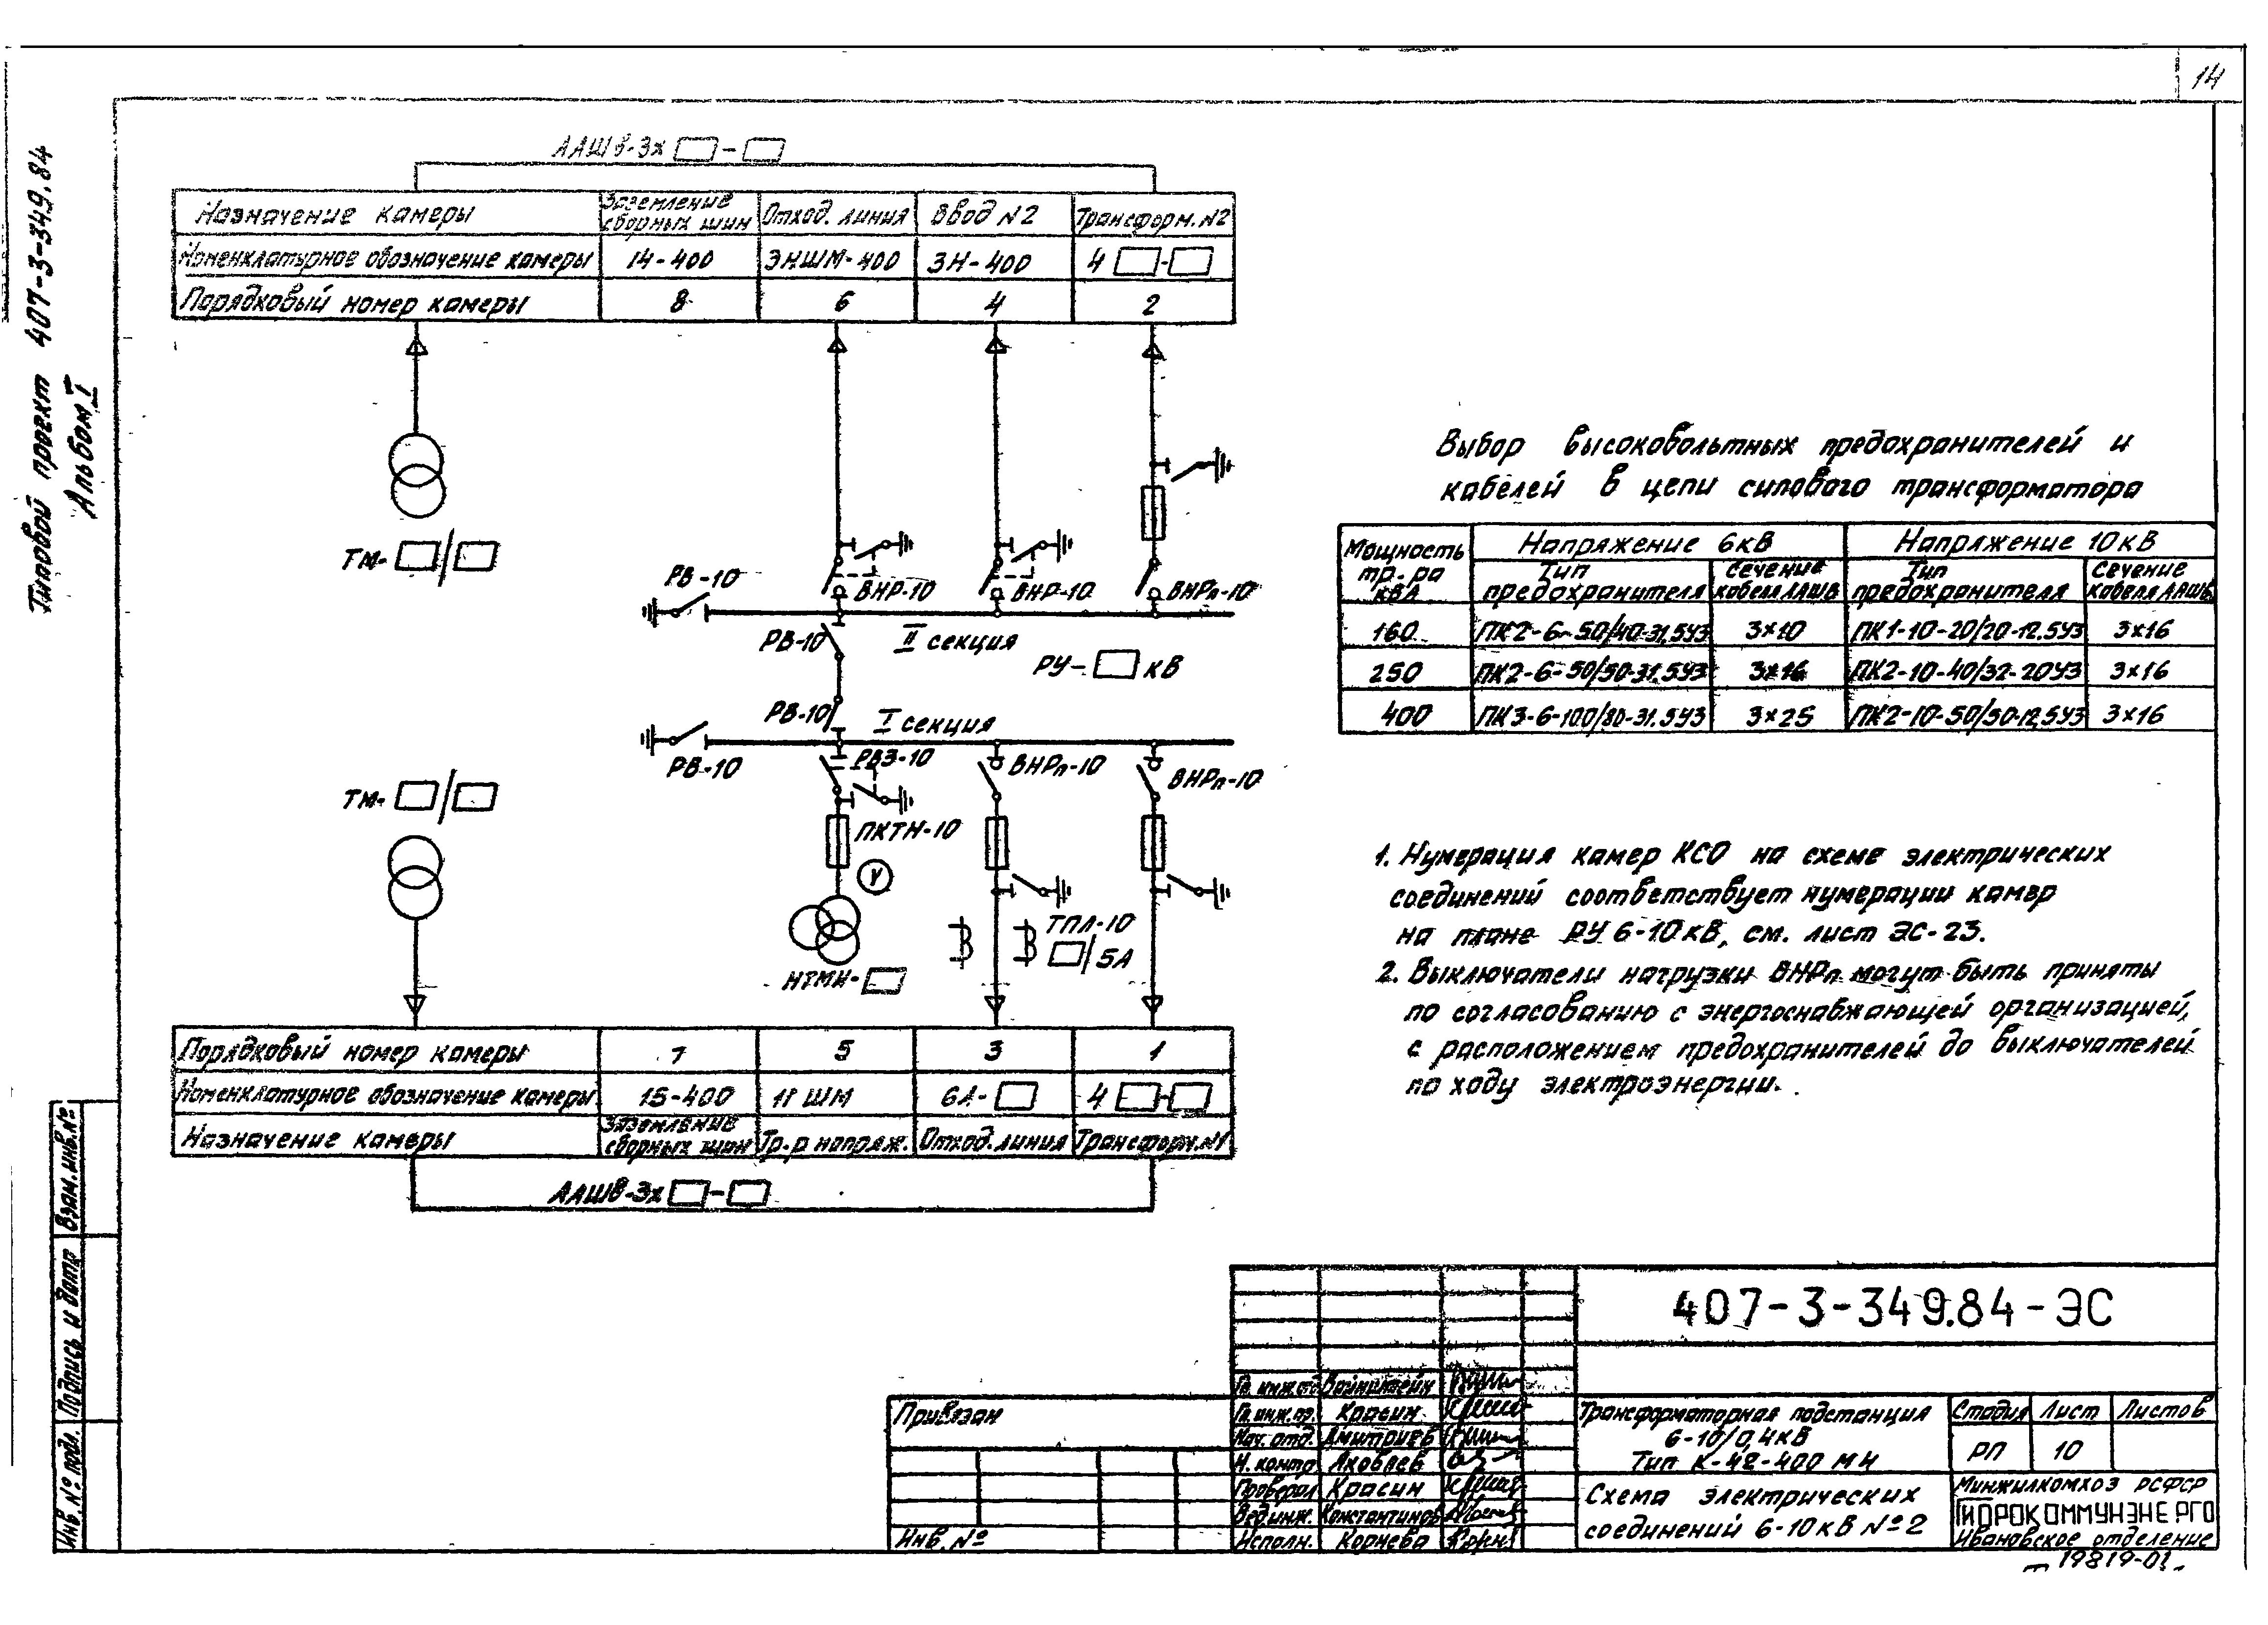 14
Типовой проект 407-3-349.84
Альбом I
ААШв-3х □-□
Назначение камеры
Заземление сборных шин
Отход. линия
Ввод №2
Трансформ. №2
Номенклатурное обозначение камеры
14-400
3НШМ-400
3Н-400
4 □-□
Порядковый номер камеры
8
6
4
2
ТМ-□/□
РВ-10
ВНР-10
ВНР-10
ВНРп-10
РВ-10
II секция
РУ-□ кВ
РВ-10
I секция
РВ-10
РВЗ-10
ВНРп-10
ВНРп-10
ТМ-□/□
ПКТН-10
V
ТПЛ-10
□/5А
НТМИ-□
Порядковый номер камеры
7
5
3
1
Номенклатурное обозначение камеры
15-400
ШМ
6А-□
4 □-□
Назначение камеры
Заземление сборных шин
Тр-р напряж.
Отход. линия
Трансформ. №1
ААШв-3х □-□
Выбор высоковольтных предохранителей и
кабелей в цепи силового трансформатора
Мощность тр-ра кВА
Напряжение 6кВ
Напряжение 10кВ
Тип предохранителя
Сечение кабеля ААШв
Тип предохранителя
Сечение кабеля ААШв
160
ПК2-6-50/40-31,5У3
3×10
ПК1-10-20/20-12,5У3
3×16
250
ПК2-6-50/50-31,5У3
3×16
ПК2-10-40/32-20У3
3×16
400
ПК3-6-100/80-31,5У3
3×25
ПК2-10-50/50-12,5У3
3×16
1. Нумерация камер КСО на схеме электрических
соединений соответствует нумерации камер
на плане РУ 6-10кВ, см. лист ЭС-23.
2. Выключатели нагрузки ВНРп могут быть приняты
по согласованию с энергоснабжающей организацией,
с расположением предохранителей до выключателей
по ходу электроэнергии.
Взам. инв. №
Подпись и дата
Инв. № подл.
407-3-349.84-ЭС
Привязан
Инв. №
Гл. инж. от. Вайнштейн
Гл. инж. пр. Красин
Нач. отд. Дмитриев
Н. контр. Яковлев
Проверил Красин
Вед. инж. Константинов
Исполн. Корнева
Трансформаторная подстанция
6-10/0,4кВ
Тип К-42-400 МН
Стадия
Лист
Листов
РП
10
Схема электрических
соединений 6-10кВ №2
Минжилкомхоз РСФСР
ГИПРОКОММУНЭНЕРГО
Ивановское отделение
19819-01